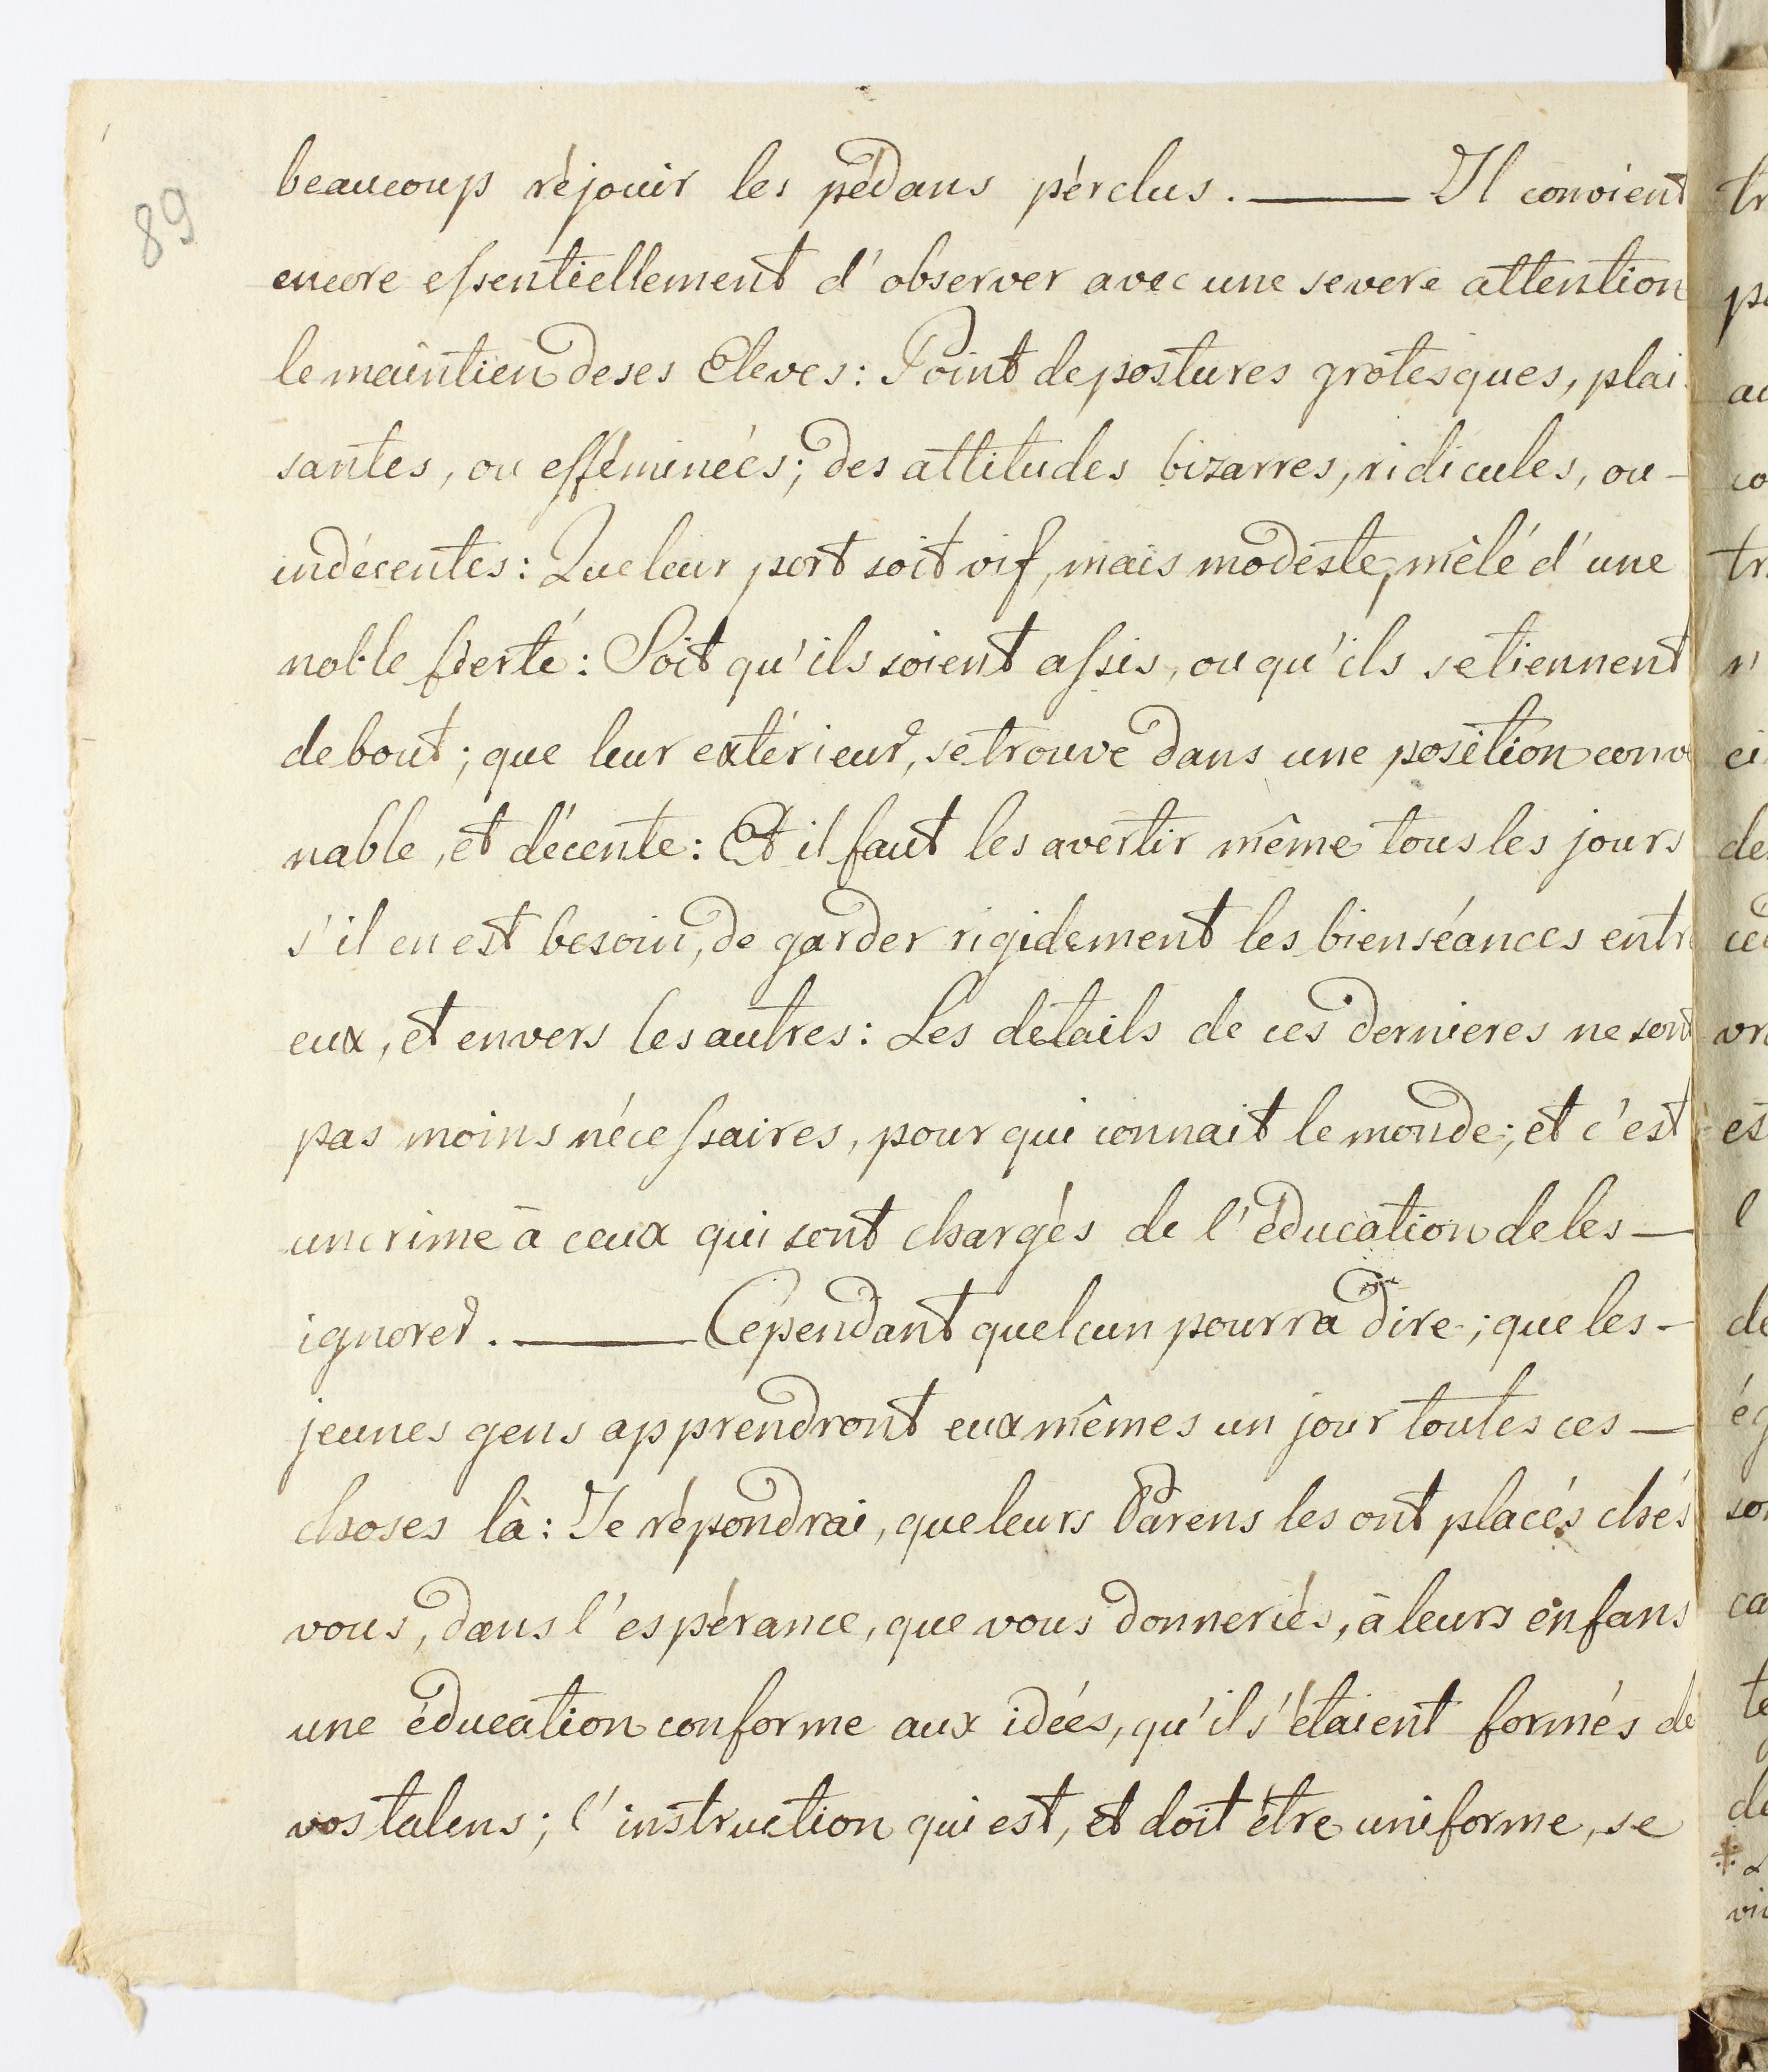 89
beaucoup réjouir les pédans pérclus. —— Il convient
encore essentiellement d'observer avec une severe attention
le maintien de ses Eleves: Point de postures grotesques, plai-
santes, ou efféminées; des attitudes bizarres, ridicules, ou -
indécentes: Que leur port soit vif, mais modeste, mêlé d'une
noble fierté: Soit qu'ils soient assis, ou qu'ils se tiennent
debout; que leur extérieur, se trouve dans une position conve
nable, et décente: Et il faut les avertir même tous les jours
s'il en est besoin, de garder rigidement les bienséances entre
eux, et envers les autres: Les détails de ces dernieres ne sont
pas moins nécessaires, pour qui connait le monde; et c'est
un crime à ceux qui sont chargés de l'éducation de les —
ignorer. —— Cependant quelcun pourra dire; que les -
jeunes gens apprendront eux mêmes un jour toutes ces —
choses là: Je répondrai, que leurs Parens les ont placés chés
vous, dans l'espérance, que vous donneriés, à leurs enfans
une éducation conforme aux idées, qu'il s'étaient formés de
vos talens; l'instruction qui est, et doit être uniforme, se